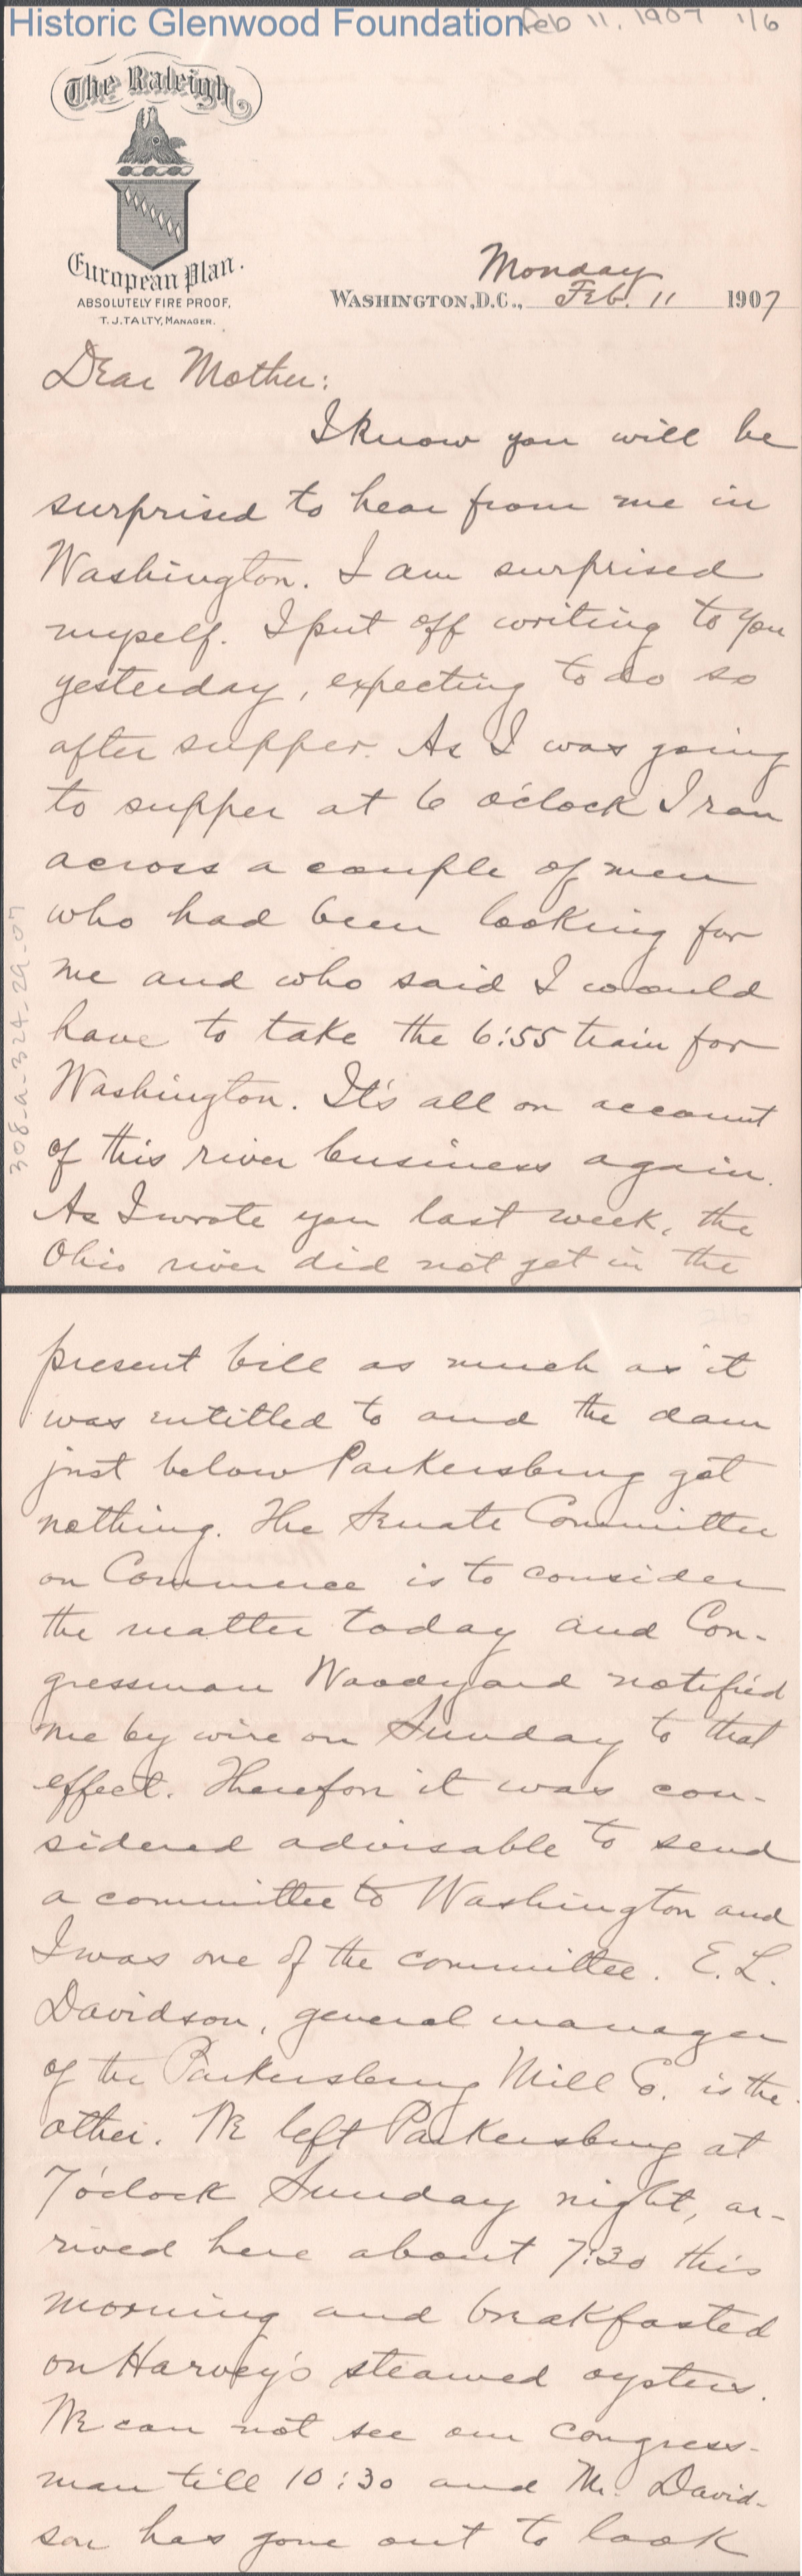 Historic Glenwood Foundation
Feb 11, 1907 1/6
The Raleigh,
European Plan.
ABSOLUTELY FIRE PROOF,
T.J. TALTY, MANAGER.
Monday
WASHINGTON, D.C., Feb. 11 1907
Dear Mother:
I know you will be
surprised to hear from me in
Washington. I am surprised
myself. I put off writing to you
yesterday, expecting to do so
after supper. As I was going
to supper at 6 o'clock I ran
across a couple of men
who had been looking for
me and who said I would
have to take the 6:55 train for
Washington. It's all on account
of this river business again.
As I wrote you last week, the
Ohio river did not get in the
308-a-324-29-07
present bill as much as it
was entitled to and the dam
just below Parkersburg got
nothing. The Senate Committee
on Commerce is to consider
the matter today and Con-
gressman Woodyard notified
me by wire on Sunday to that
effect. Therefore it was con-
sidered advisable to send
a committee to Washington and
I was one of the committee. E. L.
Davidson, general manager
of the Parkersburg Mill Co. is the
other. We left Parkersburg at
7 o'clock Sunday night, ar-
rived here about 7:30 this
morning and breakfasted
on Harvey's steamed oysters.
We can not see our congress-
man till 10:30 and Mr. David-
son has gone out to look